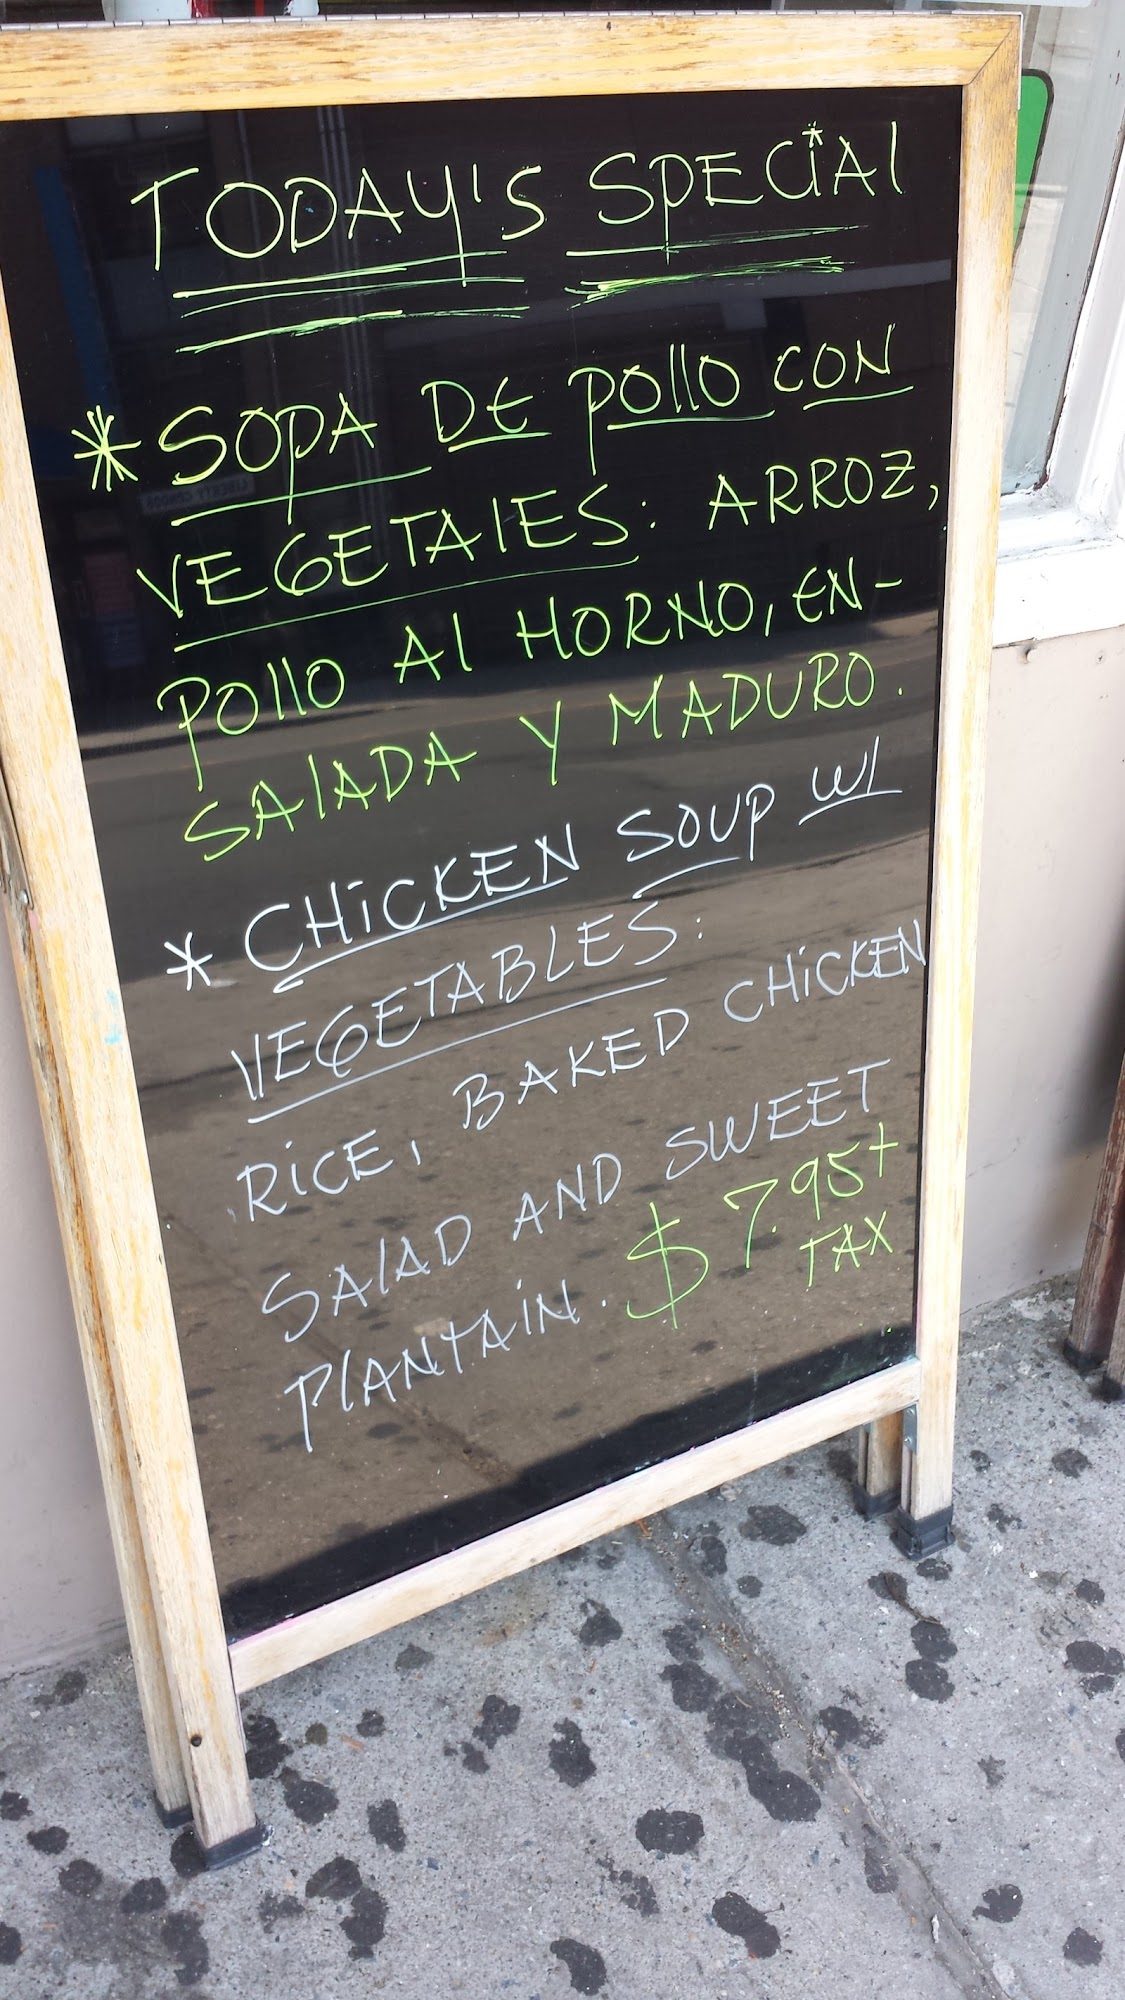 TODAY'S SPECIAL
* SOPA DE POLLO CON
VEGETALES: ARROZ,
POLLO AL HORNO, EN-
SALADA Y MADURO.
* CHICKEN SOUP W/
VEGETABLES:
RICE, BAKED CHICKEN
SALAD AND SWEET
PLANTAIN. $7.95+
TAX